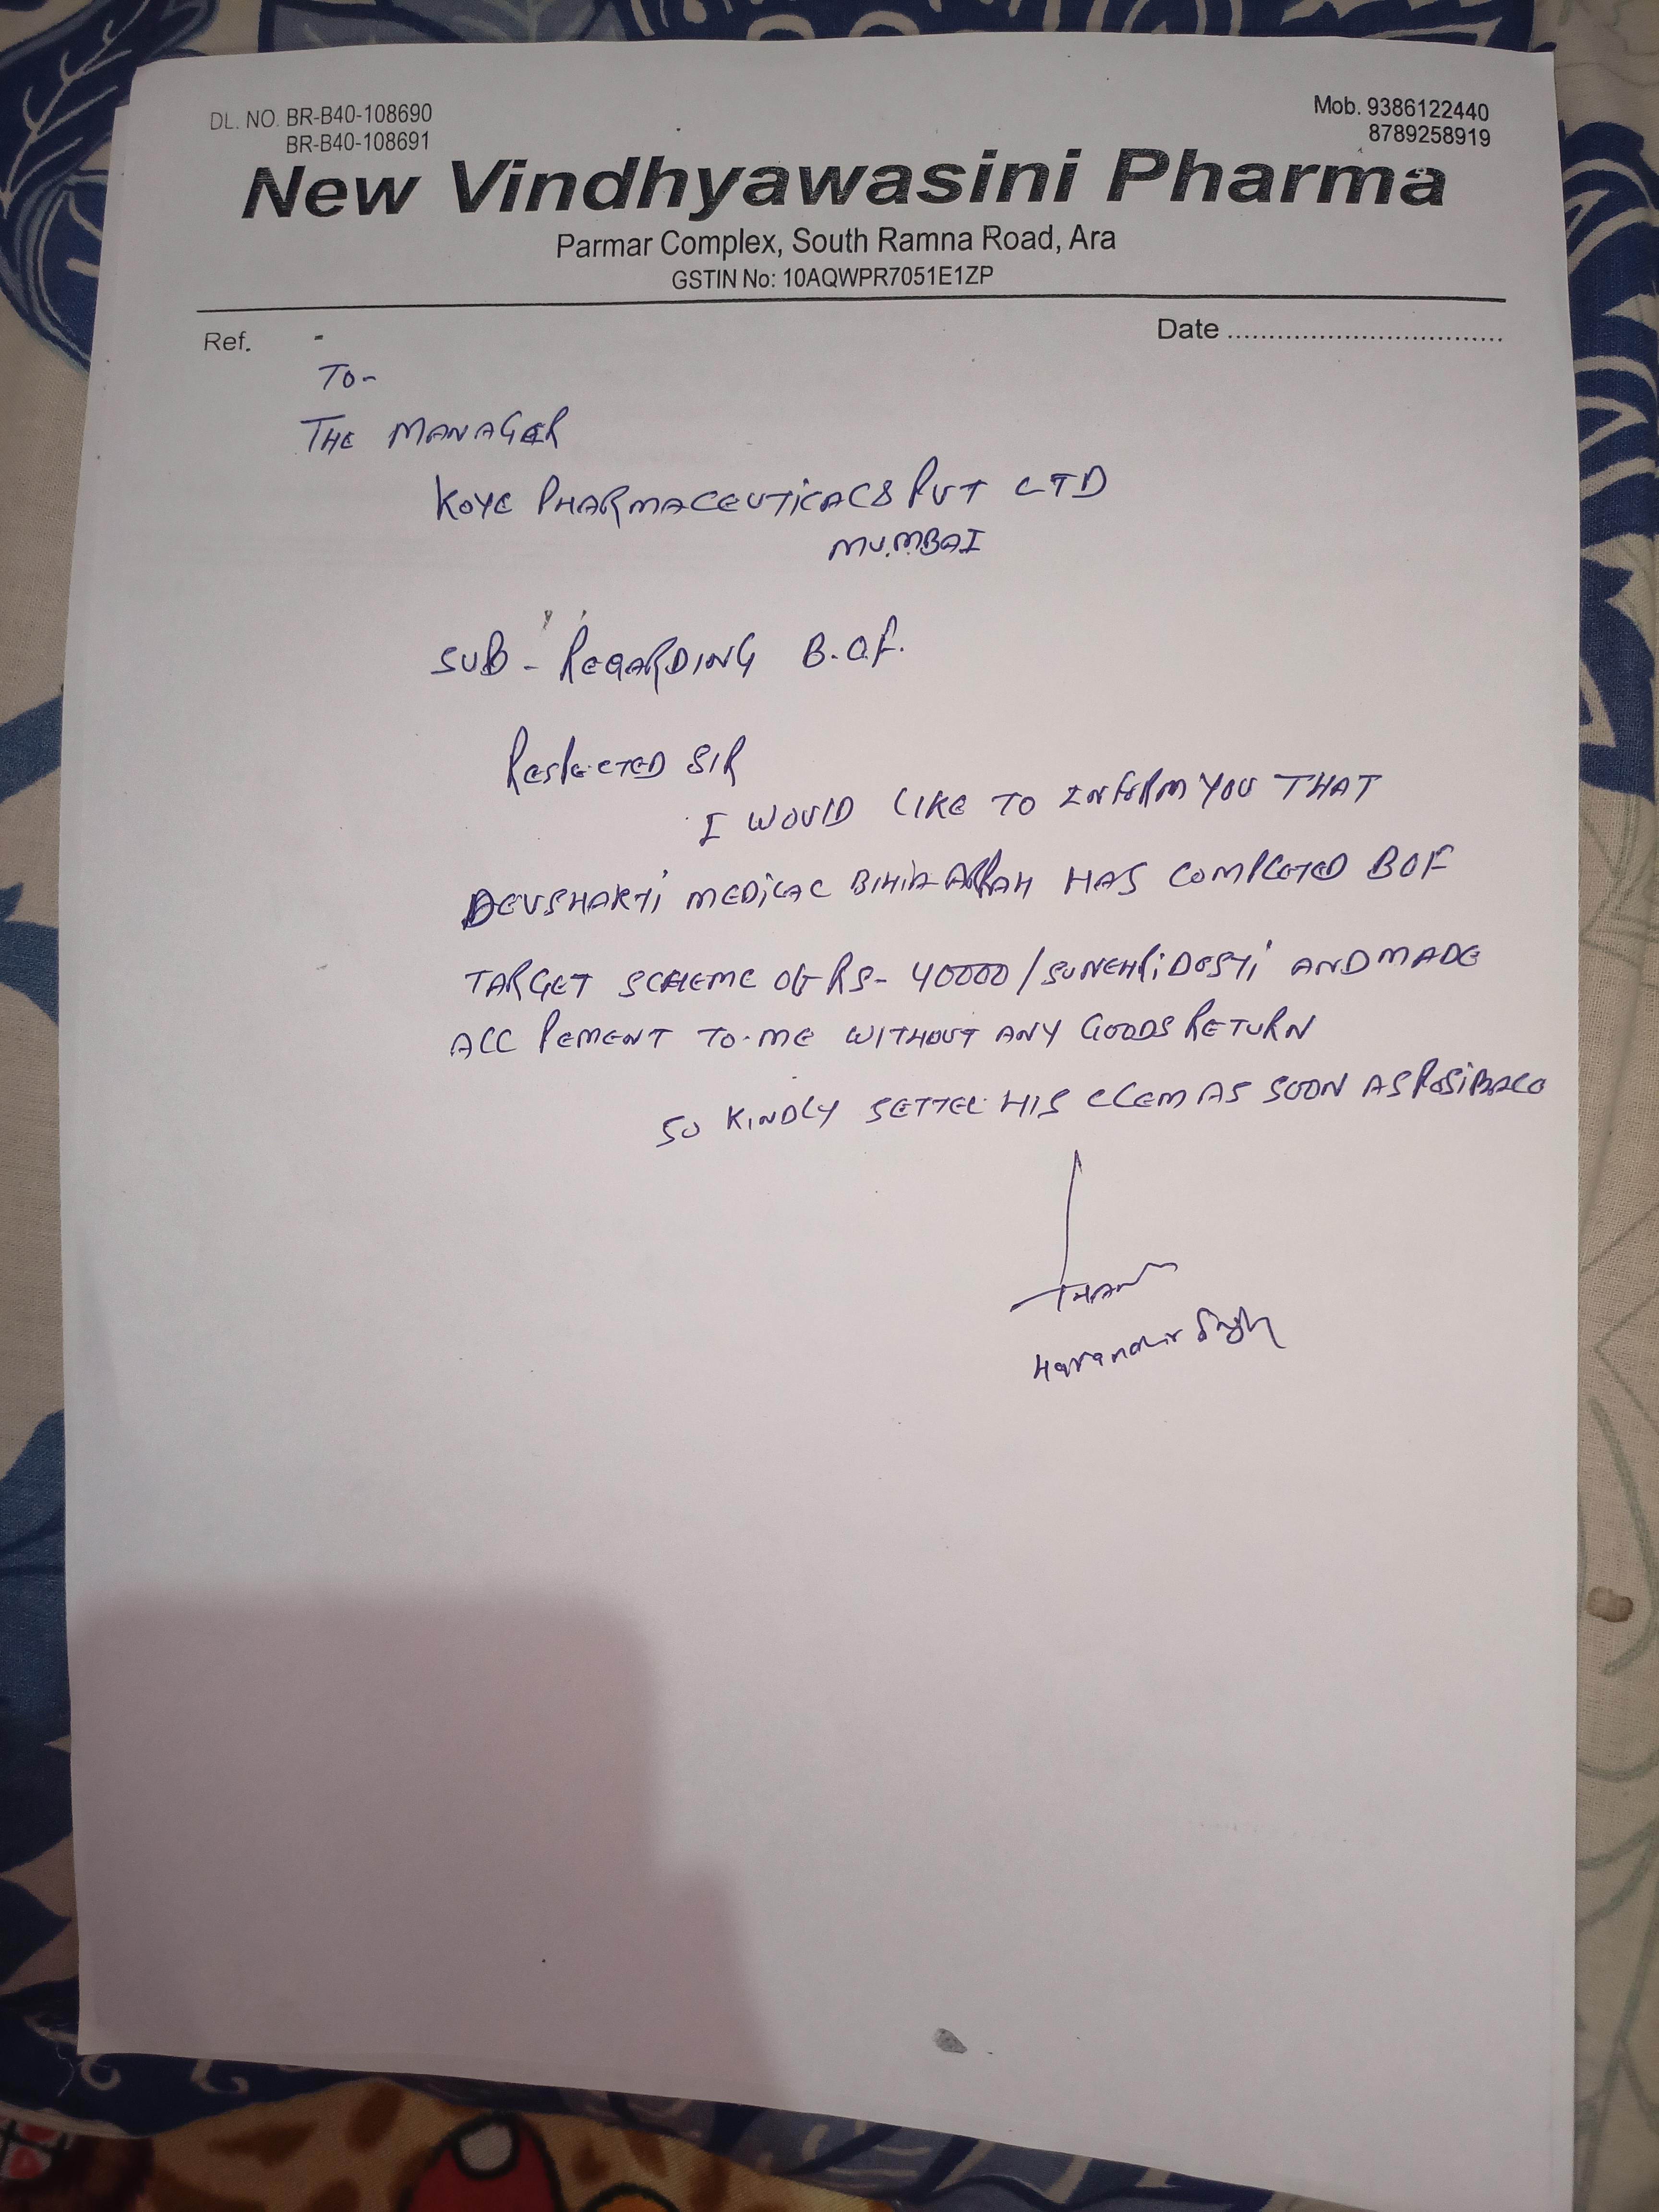 DL. NO. BR-B40-108690
BR-B40-108691
Mob. 9386122440
8789258919
New Vindhyawasini Pharma
Parmar Complex, South Ramna Road, Ara
GSTIN No: 10AQWPR7051E1ZP
Ref.
Date ..................................
TO-
THE MANAGER
KOYE PHARMACEUTICALS PVT LTD
MUMBAI
SUB - REGARDING B.O.F.
RESPECTED SIR
I WOULD LIKE TO INFORM YOU THAT
DEVSHAKTI MEDICAL BIHIA ARRAH HAS COMPLETED BOF
TARGET SCHEME OF RS- 40000/SUNEHRI DOSTI AND MADE
ALL PEMENT TO ME WITHOUT ANY GOODS RETURN
SO KINDLY SETTEL HIS CLEM AS SOON AS POSIBALE
Singh